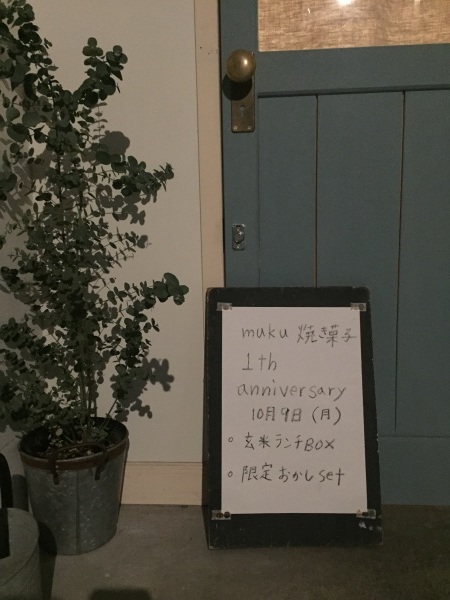 muku 焼き菓子
1th
anniversary
10月9日（月）
。玄米ランチBOX
。限定おかしset